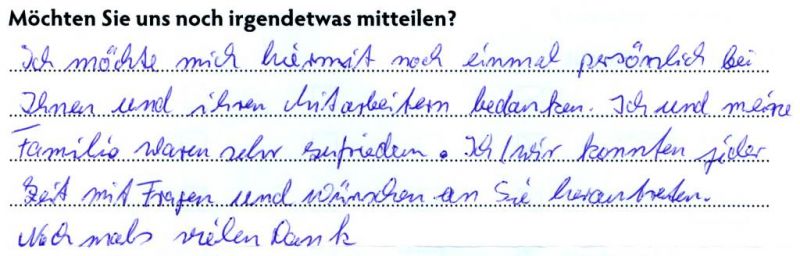 Möchten Sie uns noch irgendetwas mitteilen?
Ich möchte mich hiermit noch einmal persönlich bei
Ihnen und ihren Mitarbeitern bedanken. Ich und meine
Familie waren sehr zufrieden. Ich/wir konnten jeder
Zeit mit Fragen und Wünschen an Sie herantreten.
Noch mals vielen Dank